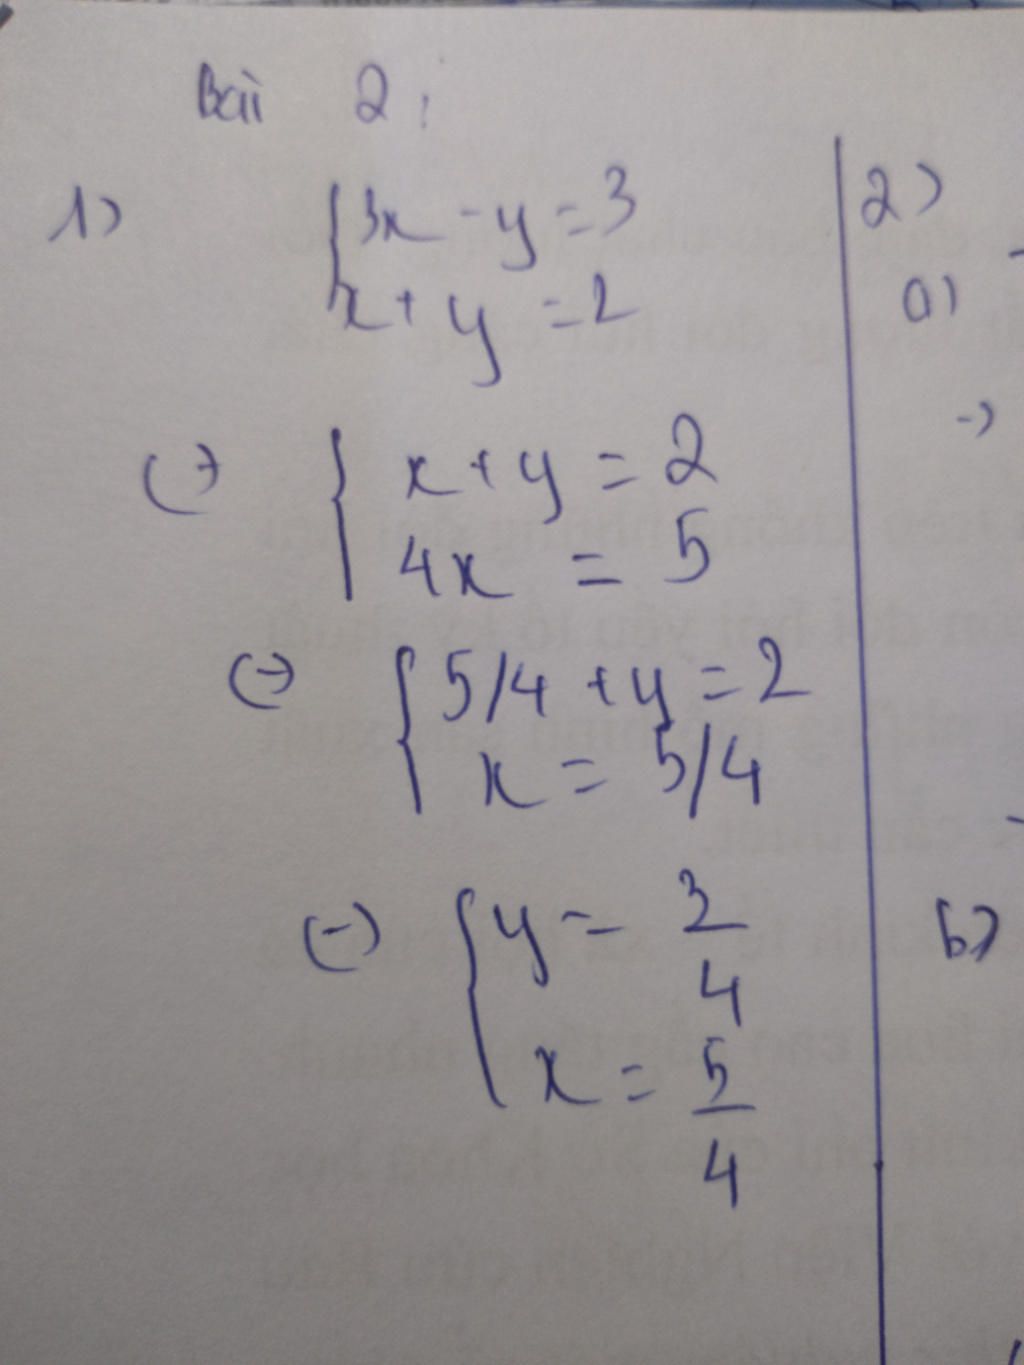 Bài 2:
1) { 3x - y = 3
x + y = 2
(-) { x + y = 2
4x = 5
(-) { 5/4 + y = 2
x = 5/4
(-) { y = 3/4
x = 5/4
2)
a)
b)